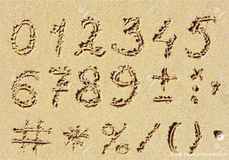 0 1 2 3 4 5
6 7 8 9 ± :
# * % / ( )